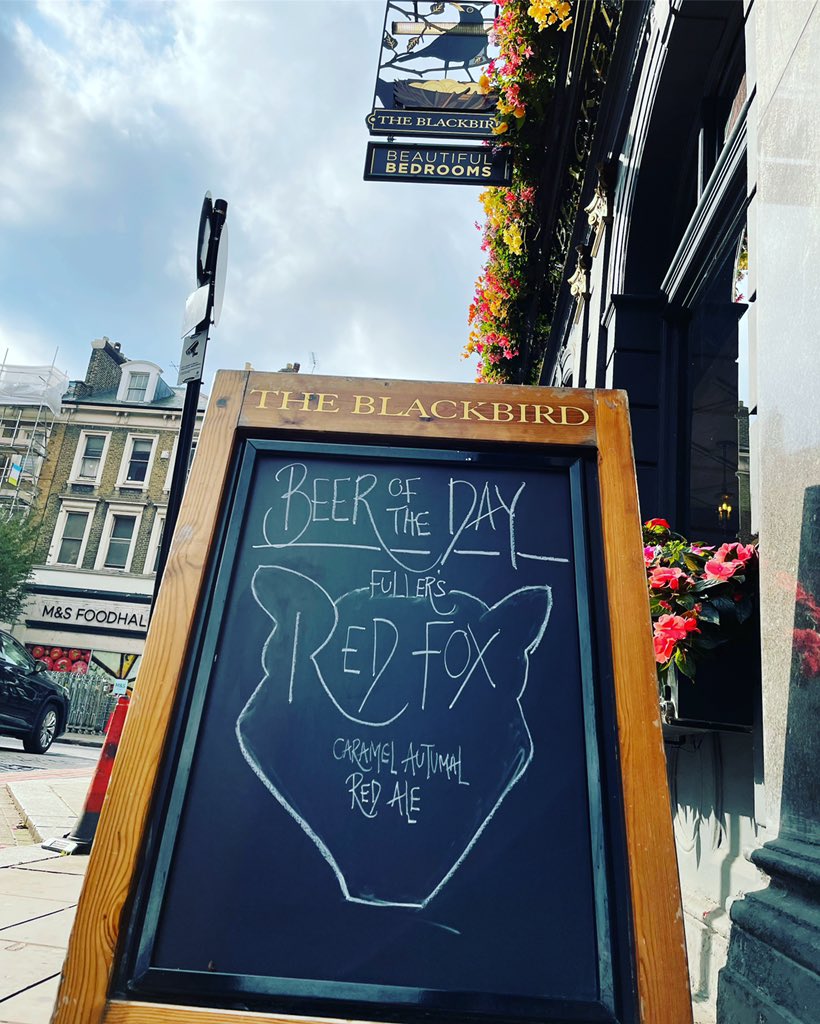 THE BLACKBIRD
BEAUTIFUL
BEDROOMS
THE BLACKBIRD
BEER OF THE DAY
FULLER'S
RED FOX
CARAMEL AUTUMAL
RED ALE
M&S FOODHAL